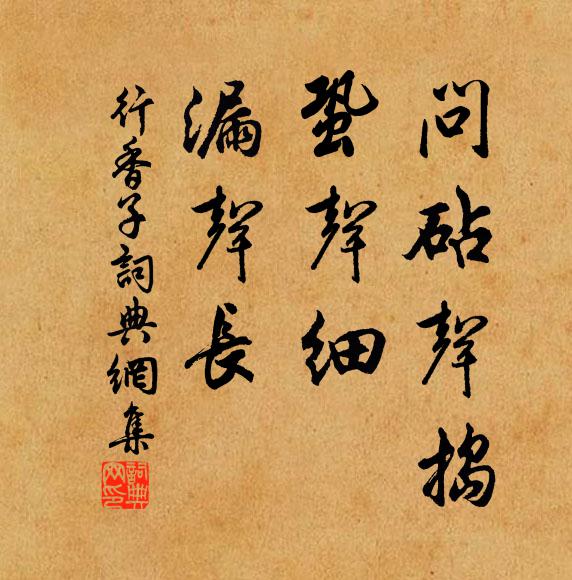 問砧聲搗
蛩聲細
漏聲長
行香子詞典網集
詞典網印